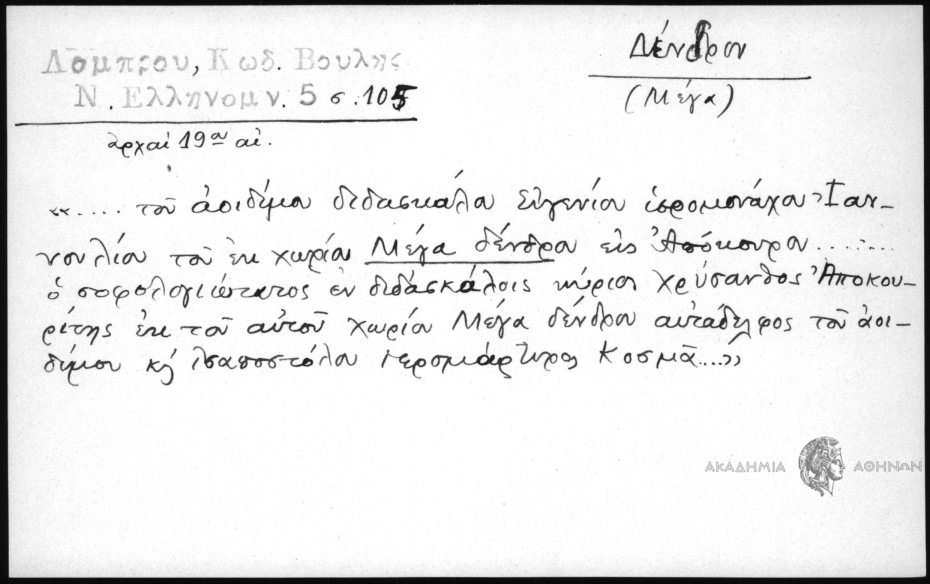 Λάμπρου, Κωδ. Βουλης
Ν. Ελληνομν. 5 σ. 105
Δένδρον
(Μέγα)
ἀρχαὶ 19ου αἰ.
«..... τοῦ ἀοιδίμου διδασκάλου Εὐγενίου ἱερομονάχου Ἰαν-
νουλίου τοῦ ἐκ χωρίου Μέγα δένδρου εἰς Ἀπόκουρο.......
ὁ σοφολογιώτατος ἐν διδασκάλοις κύριος Χρύσανθος Ἀποκου-
ρίτης ἐκ τοῦ αὐτοῦ χωρίου Μέγα δένδρου αὐτάδελφος τοῦ ἀοι-
δίμου κ̀ ἰσαποστόλου ἱερομάρτυρος Κοσμᾶ....»
ΑΚΑΔΗΜΙΑ ΑΘΗΝΩΝ